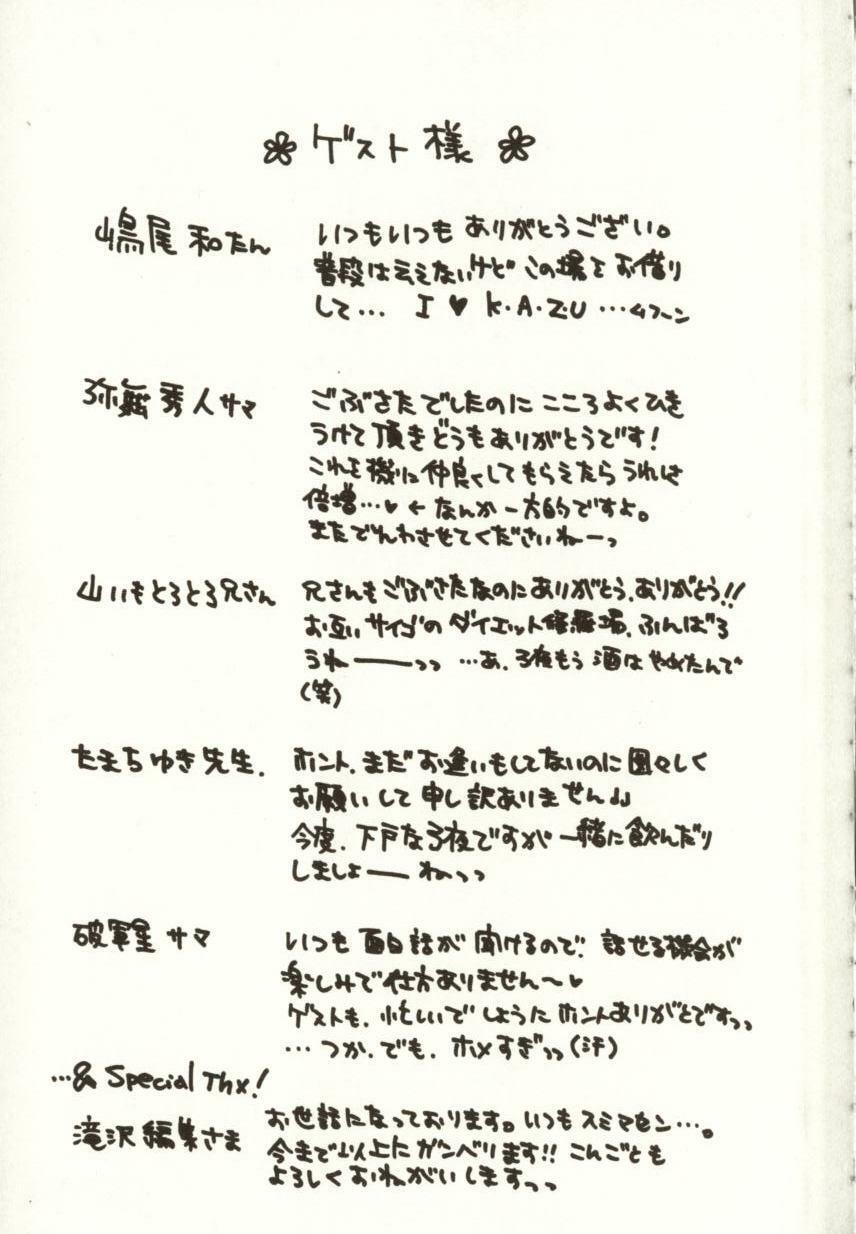 ゲスト様
嶋尾和たん
いつもいつもありがとうござい。
普段は云えないけどこの場をお借り
して… I ♥ K・A・Z・U …ムフーン
弥舞秀人サマ
ごぶさたでしたのにこころよくひき
うけて頂きどうもありがとうです!
これを機に仲良くしてもらえたらうれしさ
倍増…♥ ←なんか一方的ですよ。
またでんわさせてくださいねーっ
山いもとろとろ兄さん
兄さんもごぶさたなのにありがとう、ありがとう!!
お互いサイゴのダイエット修羅場、ふんばろ
うねーーっっ …あ、3夜もう酒はやめたんで
(笑)
たまちゆき先生.
ホント、まだお逢いもしてないのに図々しく
お願いして申し訳ありません
今度、下戸な3夜ですが一緒に飲んだり
しましょーーねっっ
破軍星サマ
いつも面白話が聞けるので、話せる機会が
楽しみで仕方ありません〜♥
ゲストも、忙しいでしょうにホントありがとですっっ
…つか、でも、ホメすぎっっ(汗)
…& Special Thx!
滝沢編集さま
お世話になっております。いつもスミマセン…。
今まで以上にガンバリます!! こんごとも
よろしくおねがいしますっっ